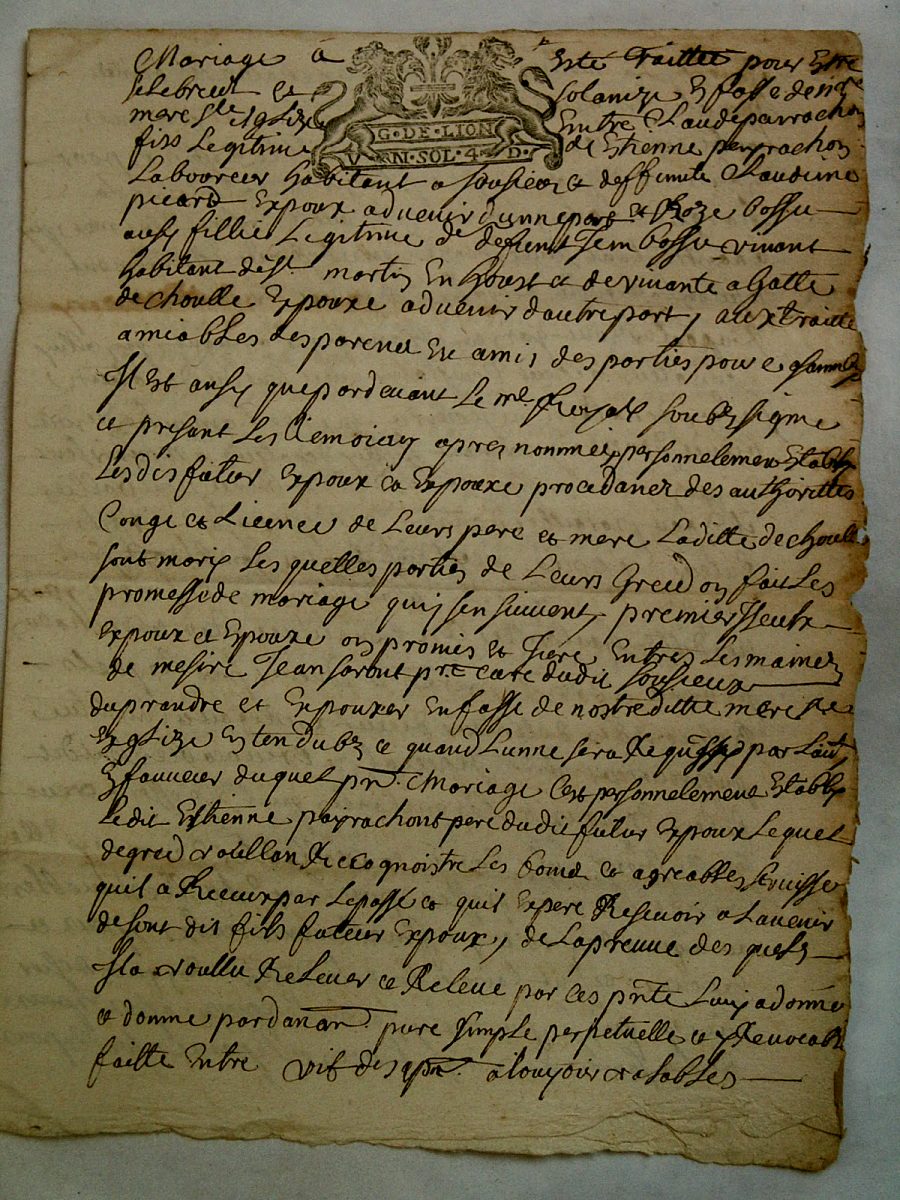 Mariage à esté traitté pour Estre
selebreit et solanize En fasse denrē
mere Ste Eglize Entre Claude parrachon
G·DE·LION
fils Legitime de Ethienne peyrachon
V N·SOL·4·D·
Laboureur habitant a sousieux et deffunte Claudine
picard Expoux aduenir dunne part et Roze bossu
ausy fillie Legitime de defient Jean bossu viuant
habitant de St martin En houst et de viuante agatte
de choulle Expouxe aduenir dautre part, aux traitte
amiables des parent Et amis des parties pour e
Il Est ausy que pardeuant Le nre Royal soubzsigne
et present Les temoings apres nommez personnelement Estably
Lesdis futur Expoux et Expouxe procedanez des authorittes
Conge et Licence de Leurs pere et mere Laditte de choulle
sont mary Les quelles parties de Leurs Gred on fait Les
promesse de mariage quy sen suiuent, premier
Expoux et Expouxe on promis et Jure Entre Les mainez
de mesire Jean pre cure dudit Sousieux
du prandre et Expouxer En fasse de nostre ditte mere ste
Eglize Estendubz et quand Lunne sera Requisse par Laut
Et faueur duquel pnt. Mariage Cest personnelement Estably
Ledit Esthienne peyrachont pere dudit futur Expoux Lequel
de gred voullan Recognoistre Les bond et agreables seruisse
quil a Receux par Le passe et quil Expere Reseuoir a Lauenir
de sont dit fils futeur Expoux, de La preuue des quels
Il a voullu Releuer et Releue par ces pnte Luy a donné
et donne par donan pure simple perpetuelle et yreuocab
faitte Entre vifs des pnt. a tousjour valables